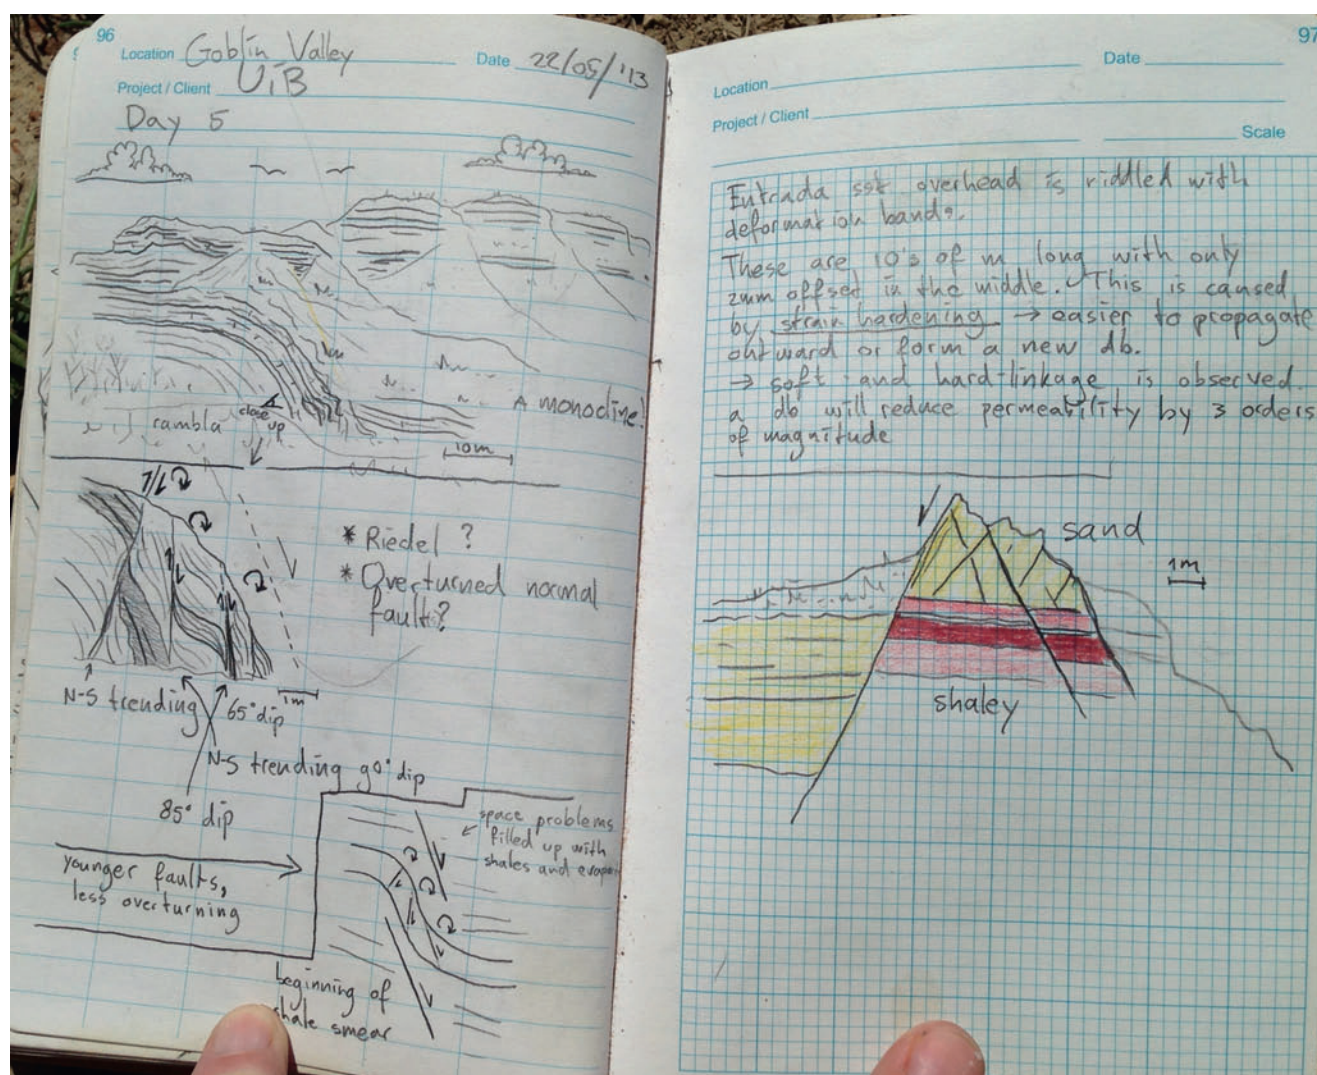 96
Location Goblin Valley Date 22/05/'13
Project / Client UiB
Day 5
A monocline!
rambla
close
up
10m
* Riedel ?
* Overturned normal
fault?
N-S trending
65° dip
1m
N-S trending 90° dip
85° dip
younger faults,
less overturning
space problems
filled up with
shales and evapo
beginning of
shale smear
97
Location Date
Project / Client
Scale
Entrada sst overhead is riddled with
deformation bands.
These are 10's of m long with only
2mm offset in the middle. This is caused
by strain hardening → easier to propagate
outward or form a new db.
→ soft and hard-linkage is observed.
a db will reduce permeability by 3 orders
of magnitude
sand
1m
shaley